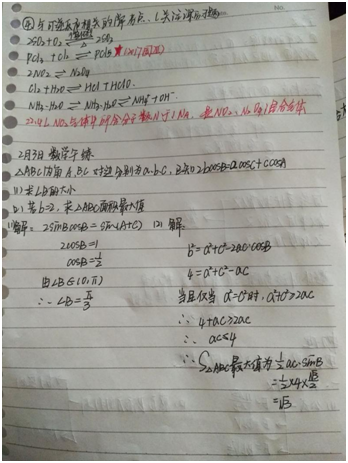 ④与可逆反应相关的
2SO₂+O₂ ⇌ 2SO₃
PCl₃+Cl₂ ⇌ PCl₅ ★
2NO₂ ⇌ N₂O₄
Cl₂+H₂O ⇌ HCl+HClO.
NH₃+H₂O ⇌ NH₃·H₂O ⇌ NH₄⁺+OH⁻
22.4L NO₂气体中所含分子数 1NA NO₂、N₂O₄
2月3日 数学
△ABC内角A.B.C对边分别为a.b.c,已知2bcosB=acosC+ccosA
(1)求∠B的大小
(2)若b=2,求△ABC面积最大值
(1)解:2sinBcosB=sin(A+C)
2cosB=1
cosB=½
由∠B∈(0,π)
∴∠B=π/3
(2)解:
b²=a²+c²-2ac·cosB
4=a²+c²-ac
当且仅当a²=c²时,a²+c²≥2ac
∴4+ac≥2ac
∴ac≤4
∴S△ABC最大值为½ac·sinB
=½×4×√3/2
=√3